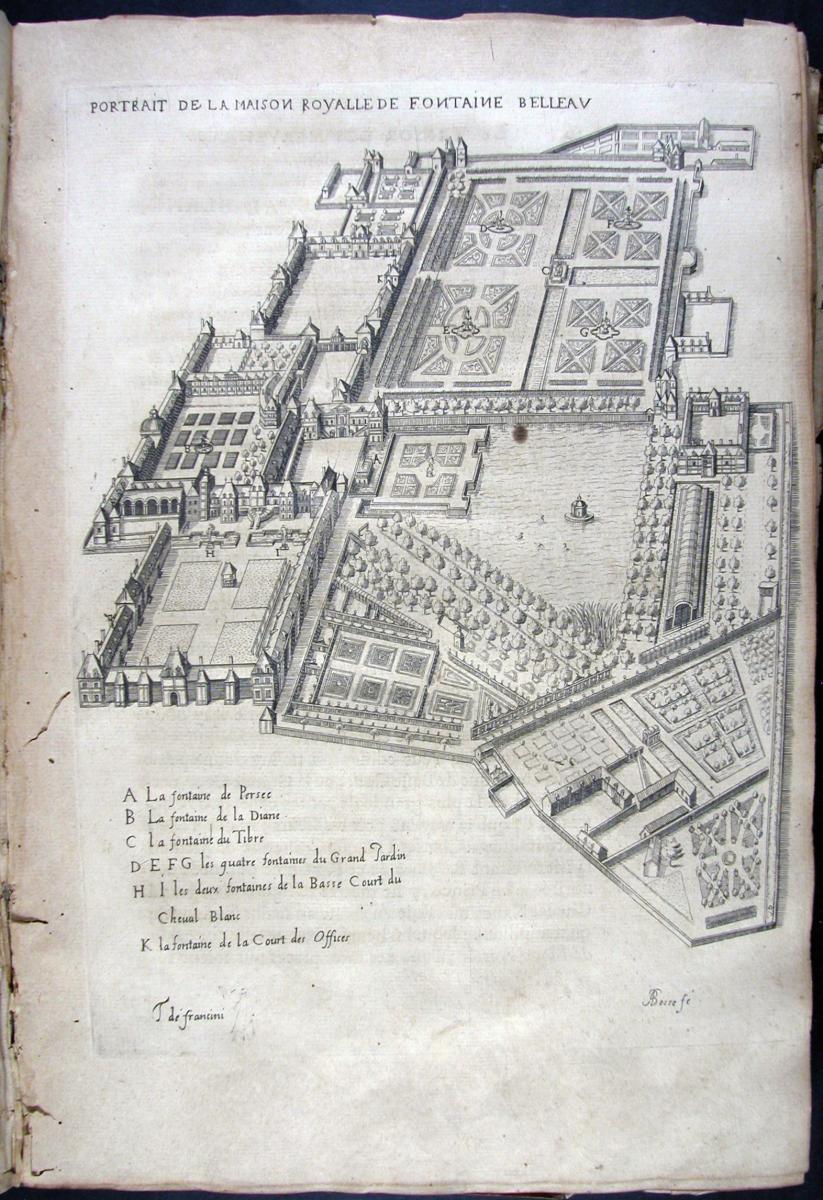 PORTRAIT DE LA MAISON ROYALLE DE FONTAINE BELLEAV
D
F
K
C
E
G
B
A
H
I
A La fontaine de Persee
B La fontaine de la Diane
C la fontaine du Tibre
D E F G les quatre fontaines du Grand Jardin
H I les deux fontaines de la Basse Court du
Cheval Blanc
K la fontaine de la Court des Offices
T de francini
ABosse fe